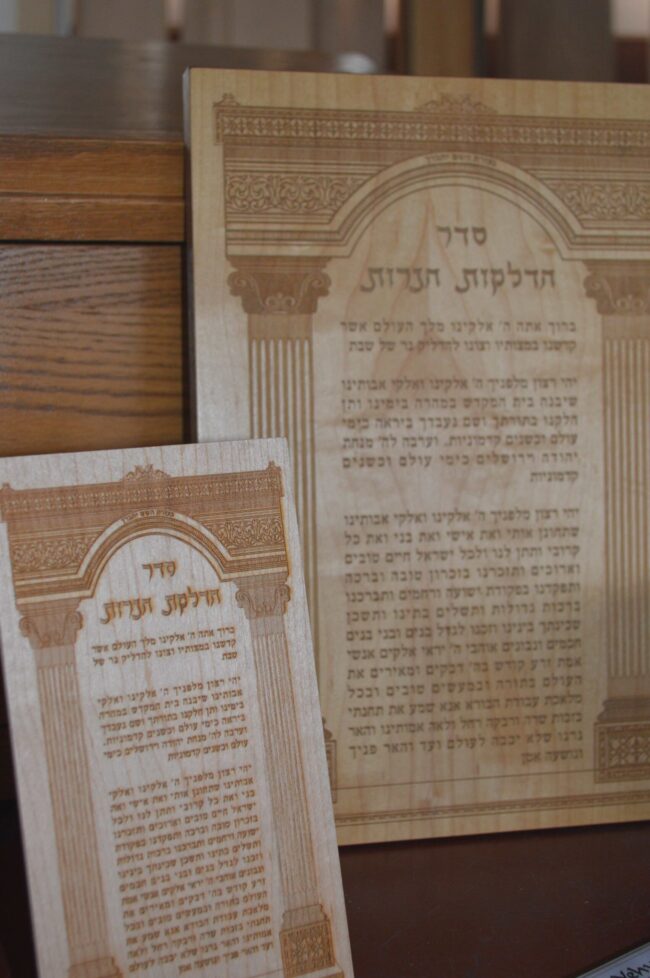 בעזרת השם יתברך
סדר
הדלקות הנרות
ברוך אתה ה' אלקינו מלך העולם אשר
קדשנו במצותיו וצונו להדליק נר של שבת
יהי רצון מלפניך ה' אלקינו ואלקי אבותינו
שיבנה בית המקדש במהרה בימינו ותן
חלקנו בתורתך ושם נעבדך ביראה כימי
עולם וכשנים קדמוניות. וערבה לה' מנחת
יהודה וירושלים כימי עולם וכשנים
קדמוניות
יהי רצון מלפניך ה' אלקינו ואלקי אבותינו
שתחונן אותי ואת אישי ואת בני ואת כל
קרובי ותתן לנו ולכל ישראל חיים טובים
וארוכים ותזכרנו בזכרון טובה וברכה
ותפקדנו בפקודת ישועה ורחמים ותברכנו
ברכות גדולות ותשלים בתינו ותשכן
שכינתך בינינו וזכנו לגדל בנים ובני בנים
חכמים ונבונים אוהבי ה' יראי אלקים אנשי
אמת זרע קודש בה' דבקים ומאירים את
העולם בתורה ובמעשים טובים ובכל
מלאכת עבודת הבורא אנא שמע את תחנתי
בזכות שרה ורבקה רחל ולאה אמותינו והאר
נרנו שלא יכבה לעולם ועד והאר פניך
ונושעה אמן
בעזרת השם יתברך
סדר
הדלקות הנרות
ברוך אתה ה' אלקינו מלך העולם אשר
קדשנו במצותיו וצונו להדליק נר של
שבת
יהי רצון מלפניך ה' אלקינו ואלקי
אבותינו שיבנה בית המקדש במהרה
בימינו ותן חלקנו בתורתך ושם נעבדך
ביראה כימי עולם וכשנים קדמוניות.
וערבה לה' מנחת יהודה וירושלים כימי
עולם וכשנים קדמוניות
יהי רצון מלפניך ה' אלקינו ואלקי
אבותינו שתחונן אותי ואת אישי ואת
בני ואת כל קרובי ותתן לנו ולכל
ישראל חיים טובים וארוכים ותזכרנו
בזכרון טובה וברכה ותפקדנו בפקודת
ישועה ורחמים ותברכנו ברכות גדולות
ותשלים בתינו ותשכן שכינתך בינינו
וזכנו לגדל בנים ובני בנים חכמים
ונבונים אוהבי ה' יראי אלקים אנשי אמת
זרע קודש בה' דבקים ומאירים את
העולם בתורה ובמעשים טובים ובכל
מלאכת עבודת הבורא אנא שמע את
תחנתי בזכות שרה ורבקה רחל ולאה
אמותינו והאר נרנו שלא יכבה לעולם
ועד והאר פניך ונושעה אמן